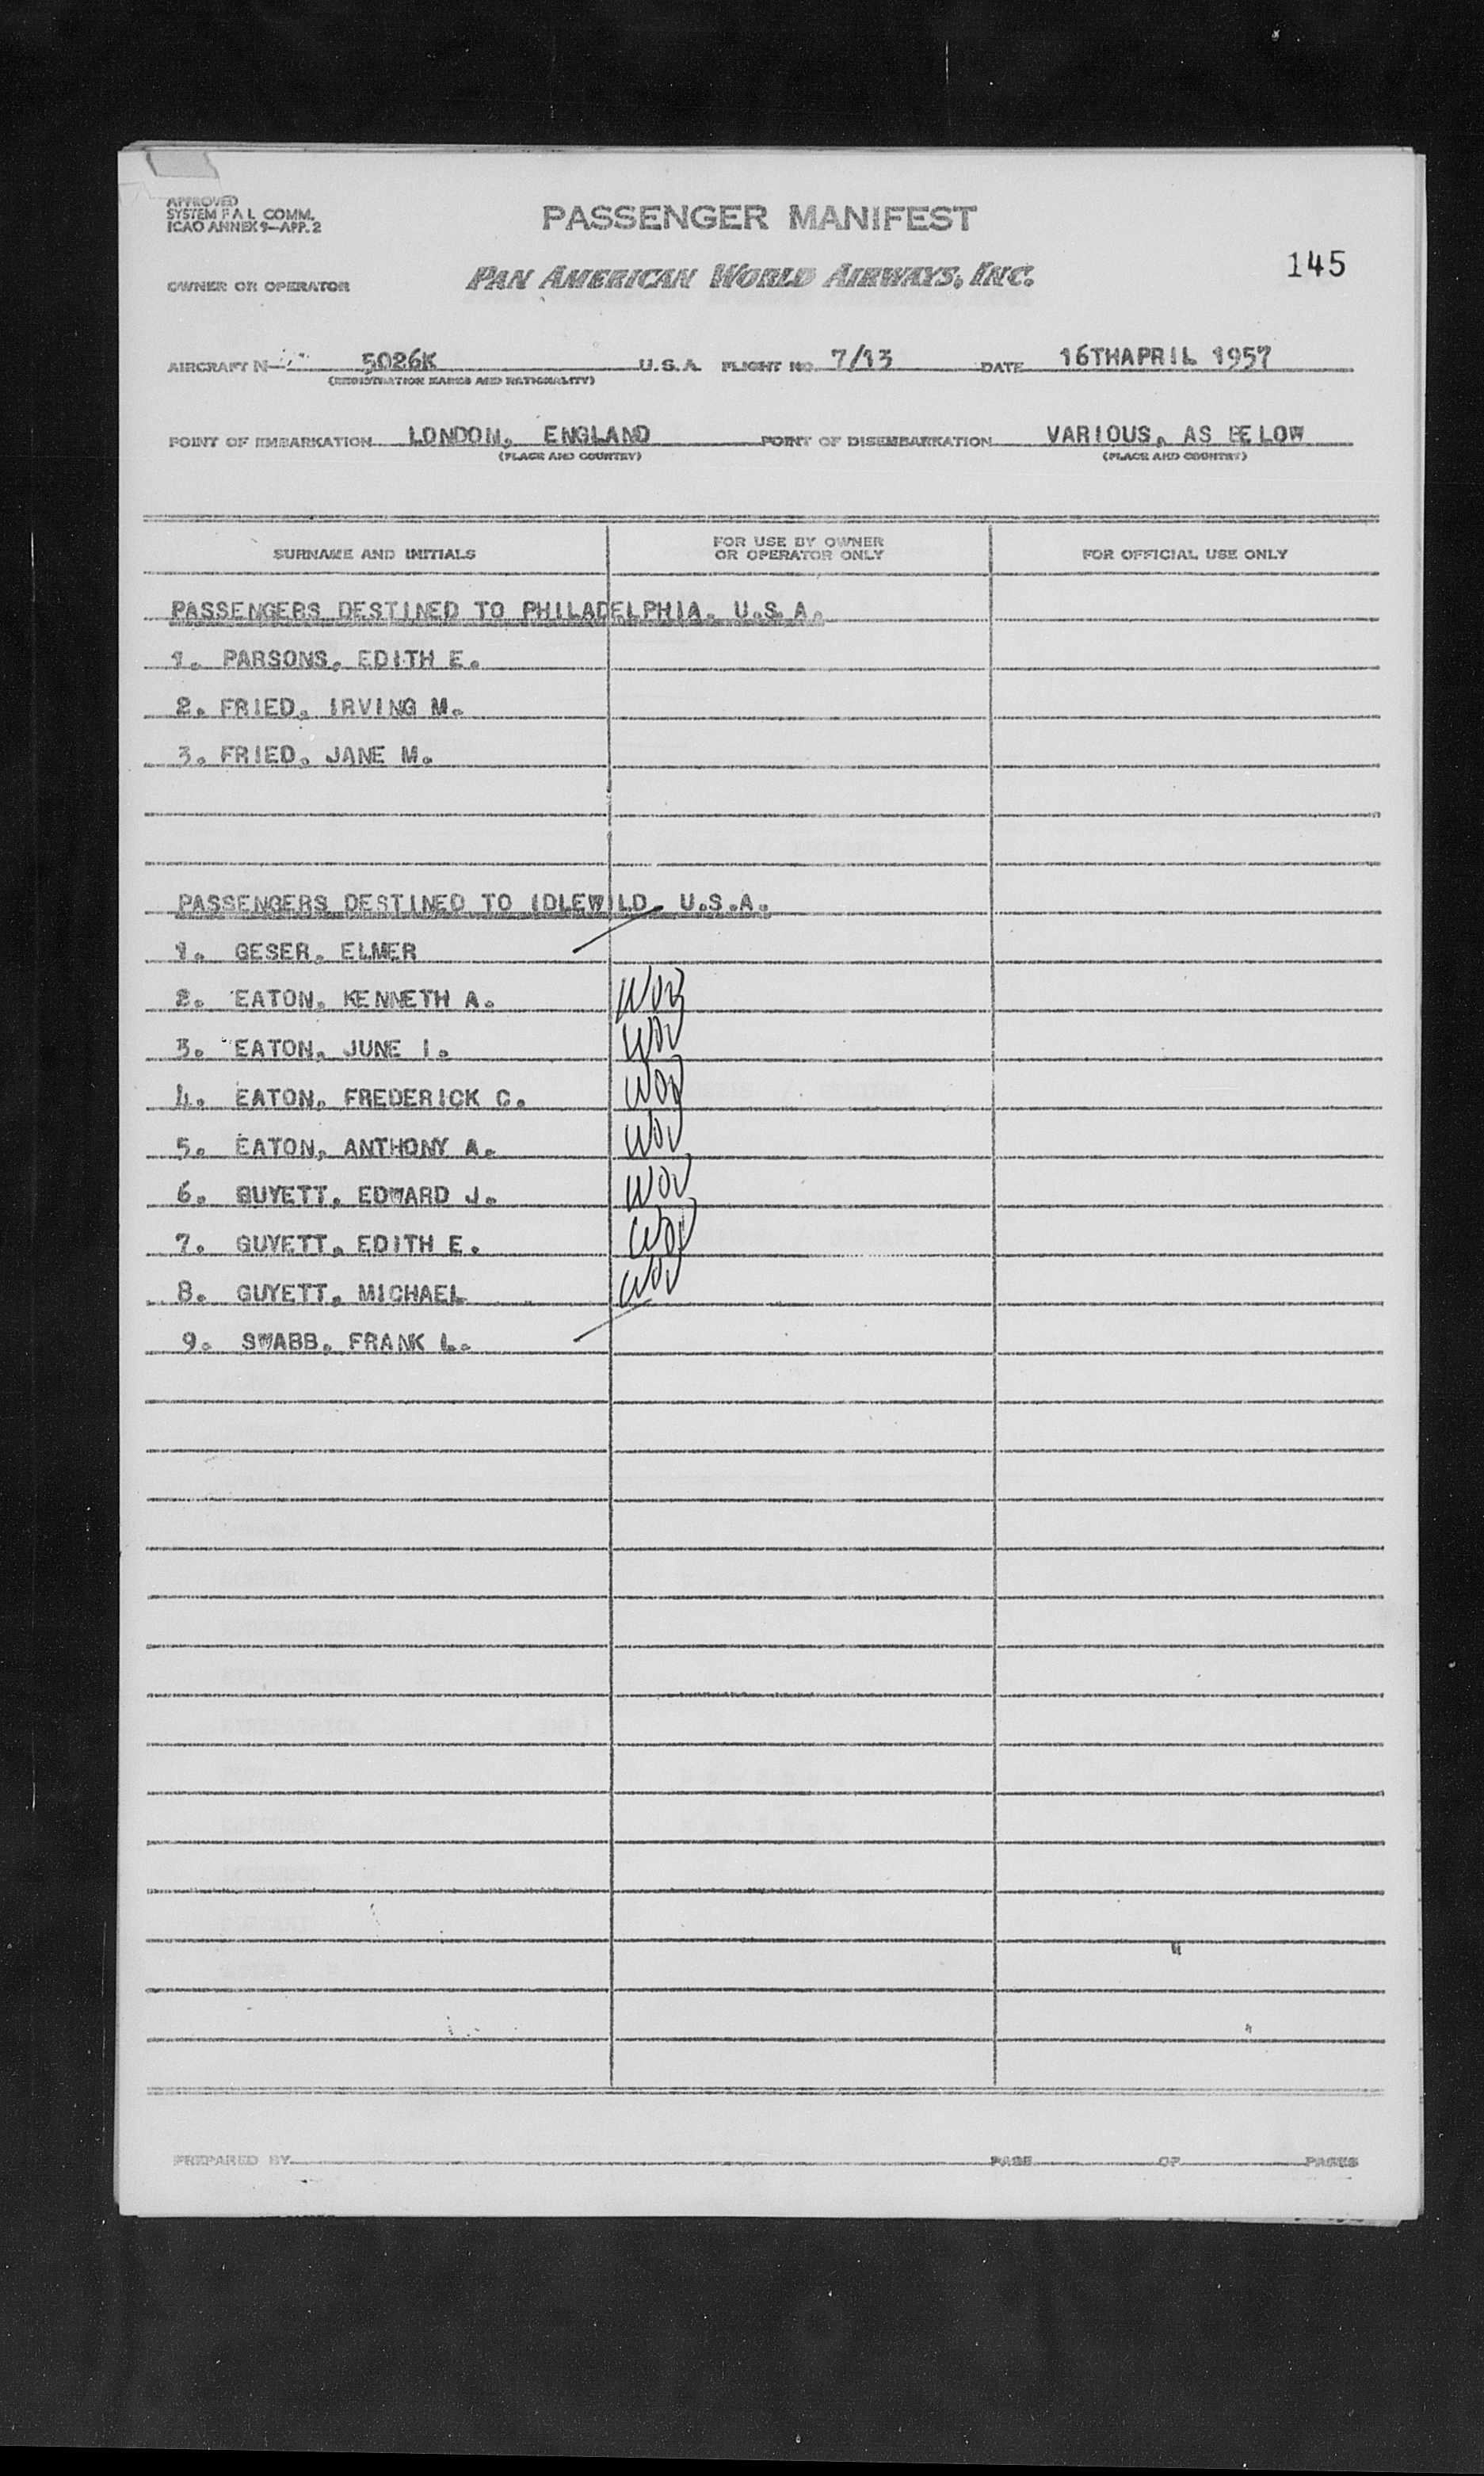 APPROVED
SYSTEM F A L COMM.
ICAO ANNEX 9—APP. 2
PASSENGER MANIFEST
145
OWNER OR OPERATOR PAN AMERICAN WORLD AIRWAYS, INC.
AIRCRAFT N- 5026K U.S.A. FLIGHT NO. 7/13 DATE 16THAPRIL 1957
(REGISTRATION MARKS AND NATIONALITY)
POINT OF EMBARKATION LONDON, ENGLAND POINT OF DISEMBARKATION VARIOUS, AS BELOW
(PLACE AND COUNTRY) (PLACE AND COUNTRY)
SURNAME AND INITIALS FOR USE BY OWNER OR OPERATOR ONLY FOR OFFICIAL USE ONLY
PASSENGERS DESTINED TO PHILADELPHIA, U.S.A.
1. PARSONS, EDITH E.
2. FRIED, IRVING M.
3. FRIED, JANE M.
PASSENGERS DESTINED TO IDLEWILD, U.S.A.
1. GESER, ELMER
2. EATON, KENNETH A.
3. EATON, JUNE I.
4. EATON, FREDERICK C.
5. EATON, ANTHONY A.
6. GUYETT, EDWARD J.
7. GUYETT, EDITH E.
8. GUYETT, MICHAEL
9. SWABB, FRANK L.
PREPARED BY PAGE OF PAGES